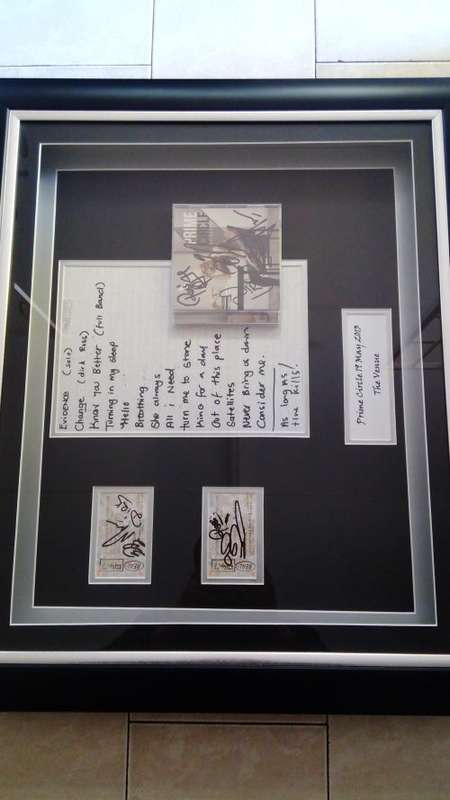 PRIME
CIRCLE
EVIDENCE (solo)
Change (dirk
Know you Better (full Band)
Turning in my sleep
Hello
Breathing
She always
All i Need
turn me to Stone
King for a day
Out of this place
Satellites
Never Bring us down
Consider me.
As long As
time Kills!
Prime Circle 19 May, 2013
The Venue